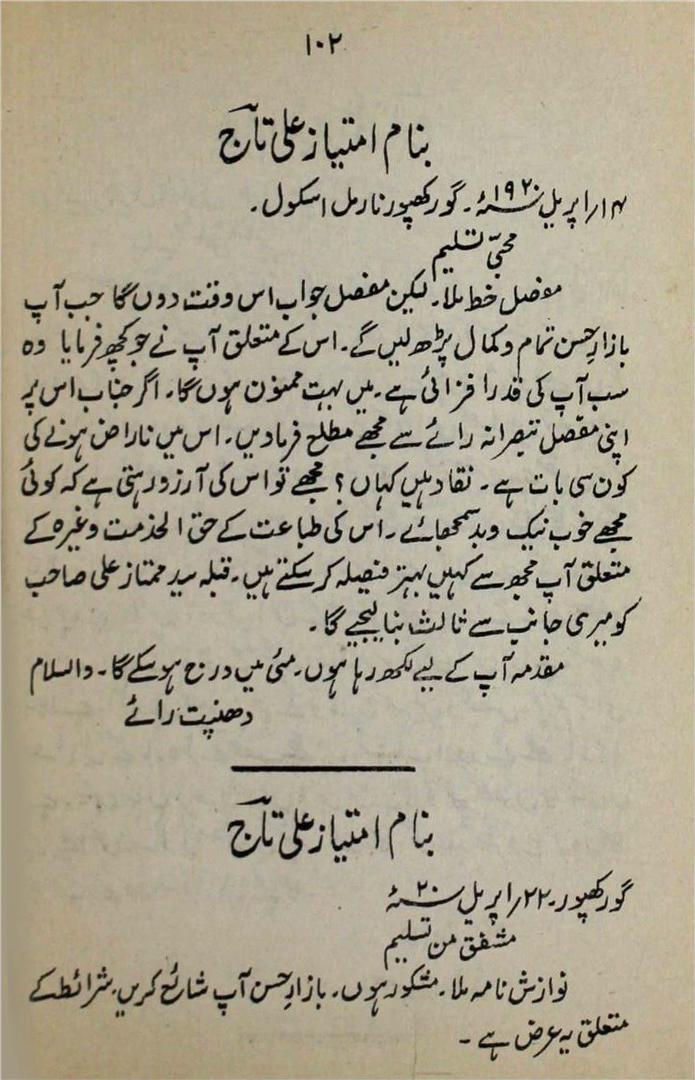 ۱۰۲
بنام امتیاز علی تاج
۱۴/ اپریل ۱۹۲۰ء۔ گورکھپور نارمل اسکول۔
محبّی تسلیم
مفصل خط ملا۔ لیکن مفصل جواب اس وقت دوں گا جب آپ
بازارِ حسن تمام و کمال پڑھ لیں گے۔ اس کے متعلق آپ نے جو کچھ فرمایا وہ
سب آپ کی قدر افزائی ہے۔ میں بہت ممنون ہوں گا۔ اگر جناب اس پر
اپنی مفصل تبصرانہ رائے سے مجھے مطلع فرمادیں۔ اس میں ناراض ہونے کی
کون سی بات ہے۔ نقاد ہیں کہاں؟ مجھے تو اس کی آرزو رہتی ہے کہ کوئی
مجھے خوب نیک و بد سمجھائے۔ اس کی طباعت کے حق الخدمت وغیرہ کے
متعلق آپ مجھ سے کہیں بہتر فیصلہ کر سکتے ہیں۔ قبلہ سید ممتاز علی صاحب
کو میری جانب سے ثالث بنا لیجیے گا۔
مقدمہ آپ کے لیے لکھ رہا ہوں۔ مئی میں درج ہو سکے گا۔ والسلام
دھنپت رائے
بنام امتیاز علی تاج
گورکھپور۔ ۲۲/ اپریل ۲۰ء
مشفق من تسلیم
نوازش نامہ ملا۔ مشکور ہوں۔ بازارِ حسن آپ شائع کریں۔ شرائط کے
متعلق یہ عرض ہے۔